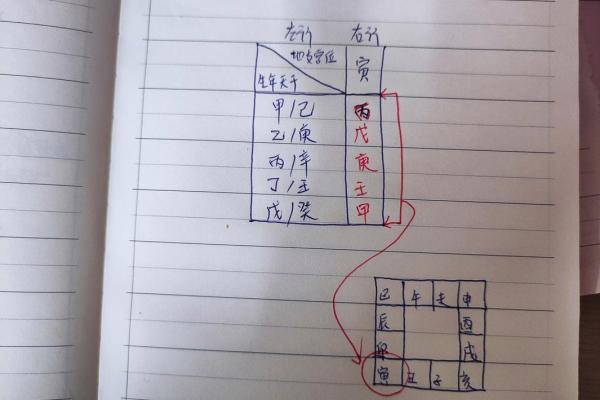 左行 右行
地支宫位 寅
生年天干
甲/己 丙
乙/庚 戊
丙/辛 庚
丁/壬 壬
戊/癸 甲
巳 午 未 申
辰 酉
卯 戌
寅 丑 子 亥